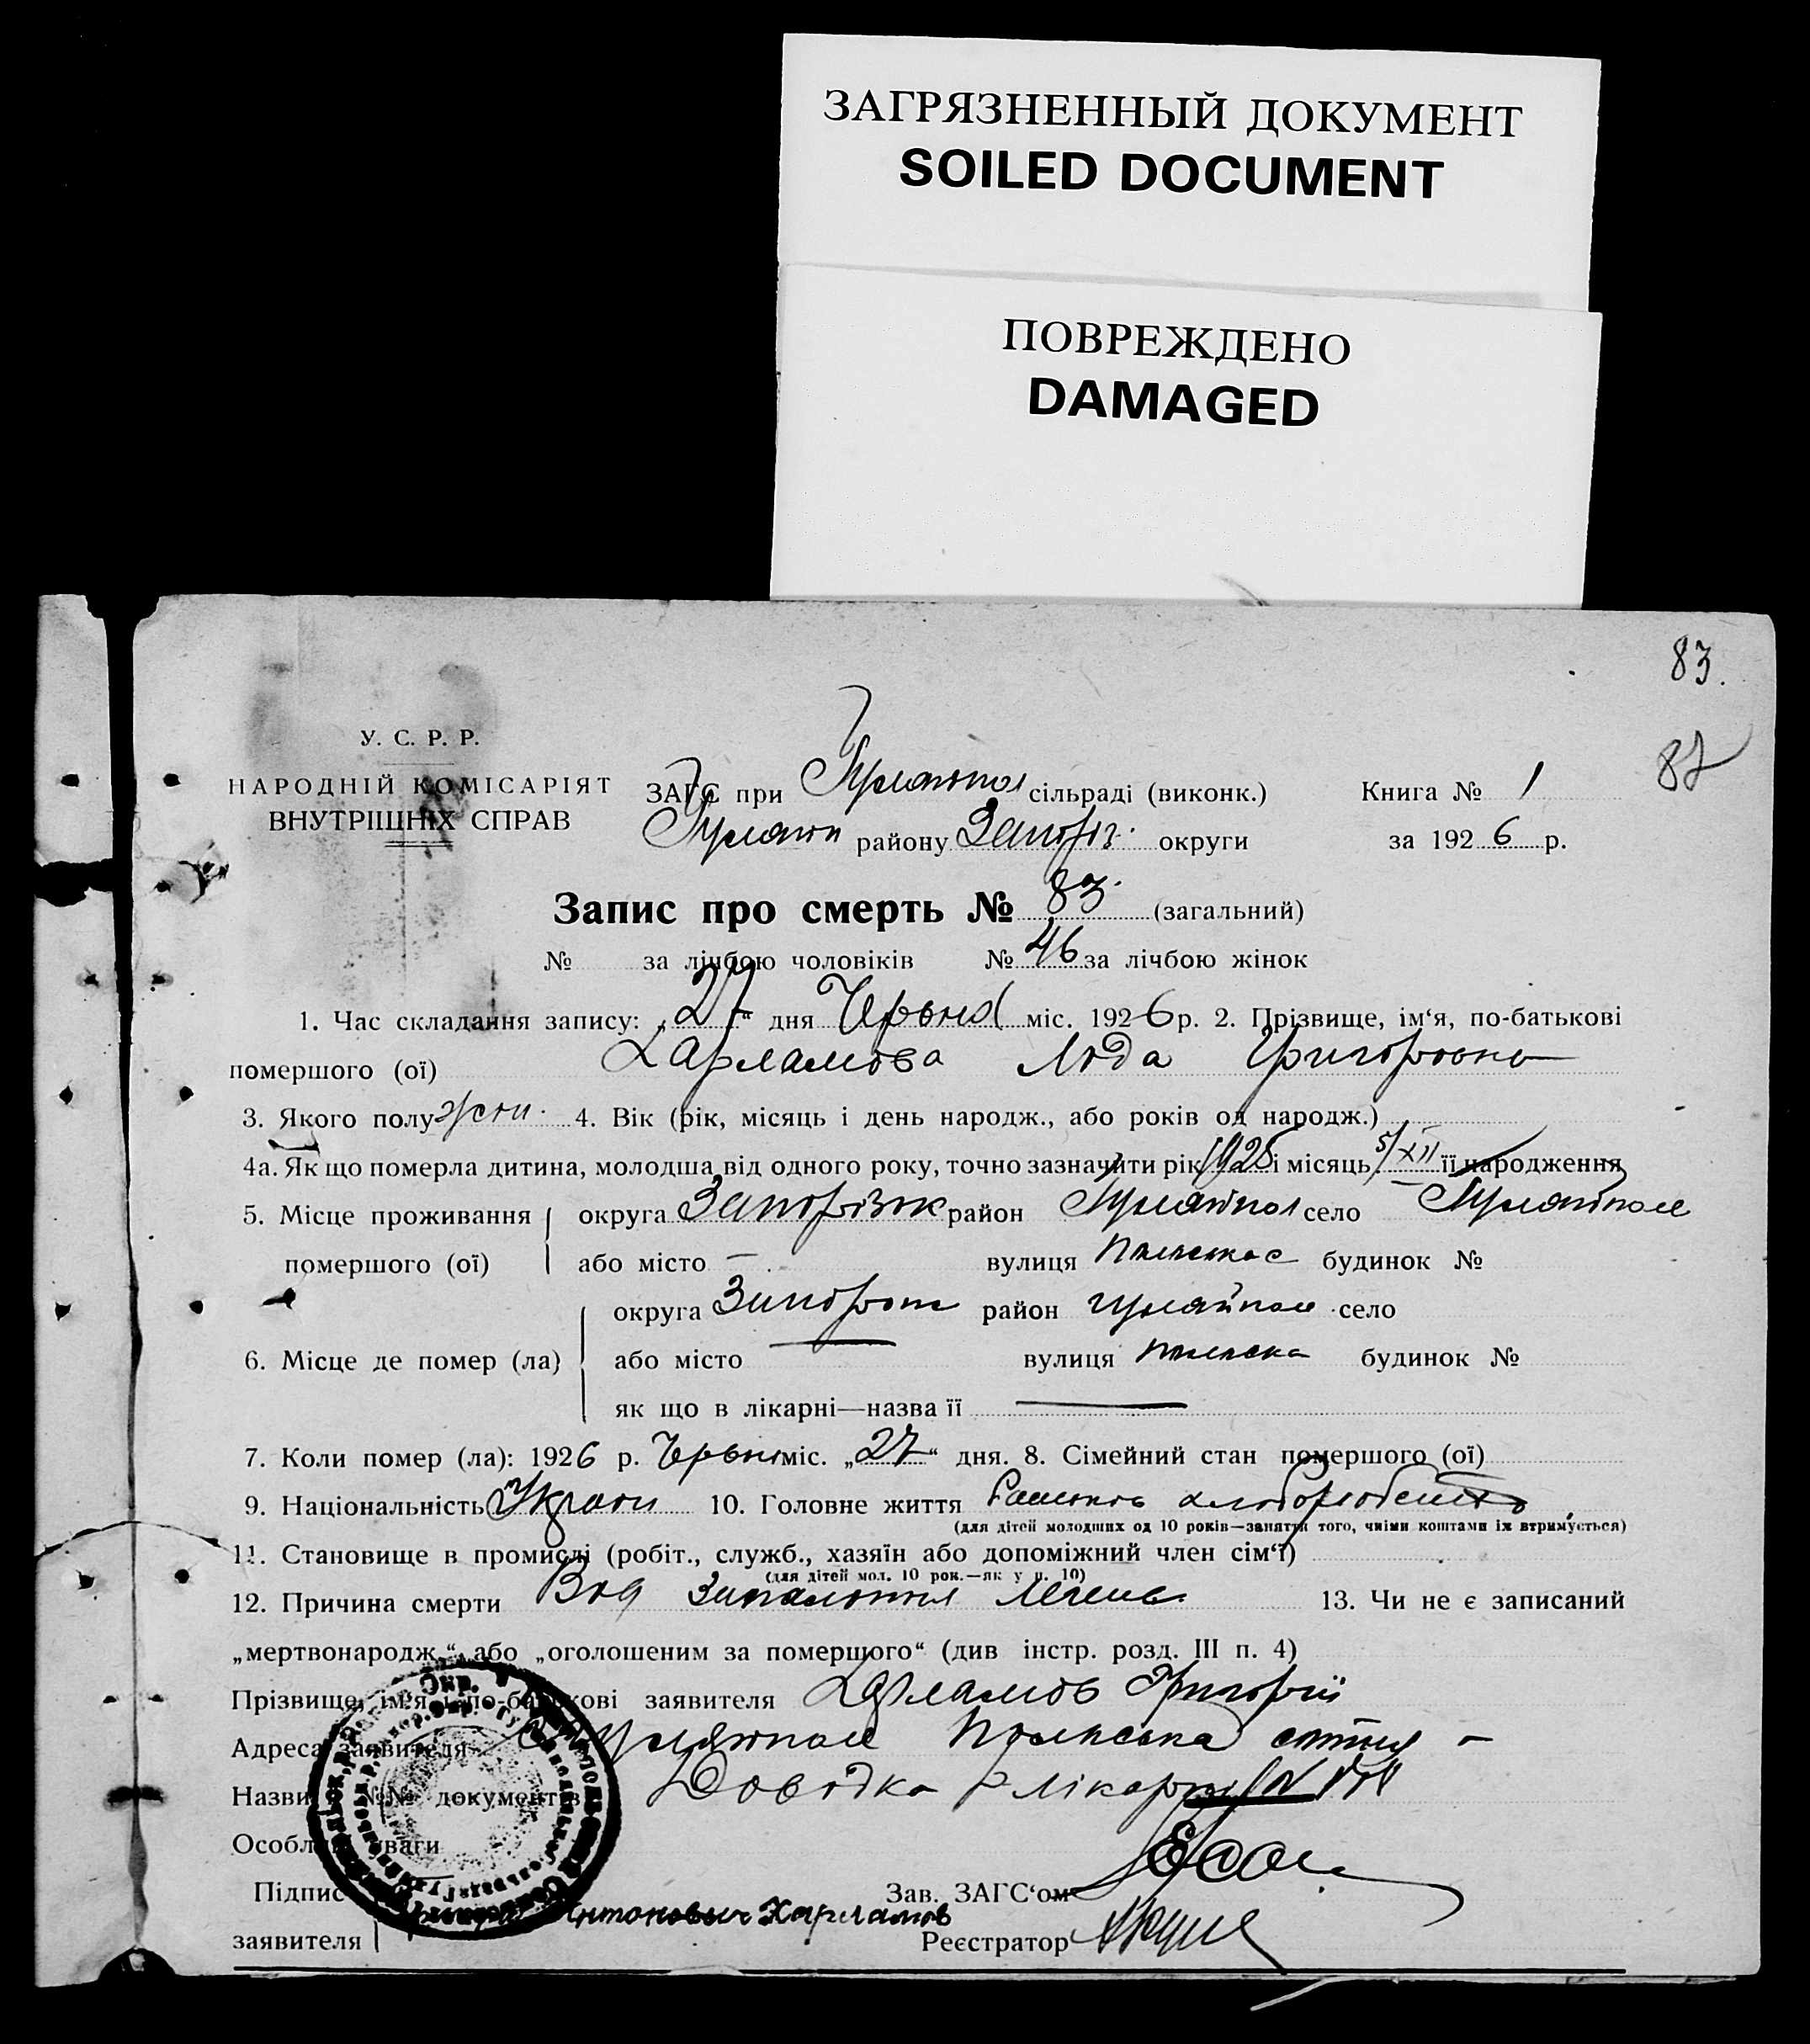 ЗАГРЯЗНЕННЫЙ ДОКУМЕНТ
SOILED DOCUMENT
ПОВРЕЖДЕНО
DAMAGED
83.
87
У. С. Р. Р.
НАРОДНІЙ КОМІСАРІЯТ
ВНУТРІШНІХ СПРАВ
ЗАГС при Гуляйпол сільраді (виконк.) Книга № 1
Гуляйп району Запоріз. округи за 1926 р.
Запис про смерть № 83. (загальний)
№ за лічбою чоловіків № 46 за лічбою жінок
1. Час складання запису: „27“ дня Червня міс. 1926 р. 2. Прізвище, ім‘я, по-батькові
помершого (ої) Харламова Лода Григоровна
3. Якого полу жін. 4. Вік (рік, місяць і день народж., або років од народж.)
4а. Як що померла дитина, молодша від одного року, точно зазначити рік 1925 і місяць 5/XII її народження
5. Місце проживання округа Запорізьк район Гуляйпол село Гуляйполе
помершого (ої) або місто — вулиця будинок №
округа район Гуляйполе село
6. Місце де помер (ла) або місто — вулиця будинок №
як що в лікарні—назва її —
7. Коли помер (ла): 1926 р. Червня міс. „27“ дня. 8. Сімейний стан помершого (ої)
9. Національність Украін 10. Головне життя хлеборобство
(для дітей молодших од 10 років—заняття того, чиїми коштами їх втримується)
11. Становище в промислі (робіт., служб., хазяїн або допоміжний член сім‘ї)
(для дітей мол. 10 рок.—як у п. 10)
12. Причина смерти Від запалення легень 13. Чи не є записаний
„мертвонародж.“ або „оголошеним за померщого“ (див інстр. розд. III п. 4)
Прізвище, ім‘я і по-батькові заявителя Харламов Григорій
Адреса заявителя Гуляйполе сотня —
Назви і №№ документів Довідка лікарні
Особливі уваги
Підпис Антонович Харламов Зав. ЗАГС‘ом
заявителя Реєстратор